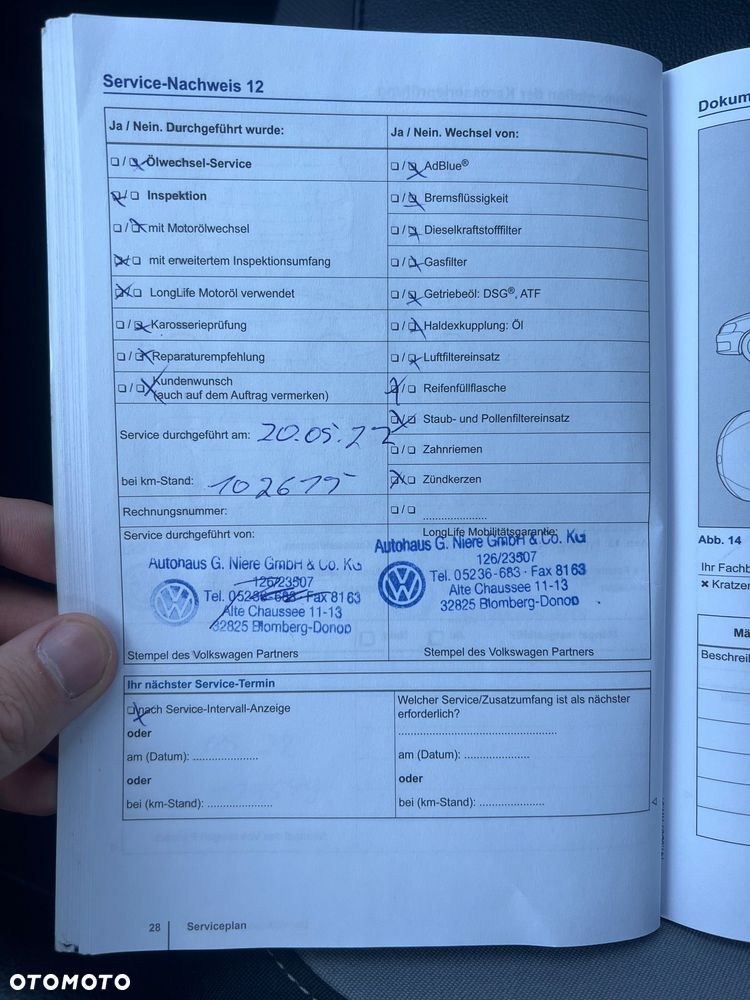 Service-Nachweis 12
Ja / Nein. Durchgeführt wurde:
❑ / ❑ Ölwechsel-Service
❑ / ❑ Inspektion
❑ / ❑ mit Motorölwechsel
❑ / ❑ mit erweitertem Inspektionsumfang
❑ / ❑ LongLife Motoröl verwendet
❑ / ❑ Karosserieprüfung
❑ / ❑ Reparaturempfehlung
❑ / ❑ Kundenwunsch
(auch auf dem Auftrag vermerken)
Service durchgeführt am: 20.05.22
bei km-Stand: 102615
Rechnungsnummer:
Service durchgeführt von:
Autohaus G. Niere GmbH & Co. KG
126/23507
Tel. 05236-683 · Fax 8163
Alte Chaussee 11-13
32825 Blomberg-Donop
Stempel des Volkswagen Partners
Ja / Nein. Wechsel von:
❑ / ❑ AdBlue®
❑ / ❑ Bremsflüssigkeit
❑ / ❑ Dieselkraftstofffilter
❑ / ❑ Gasfilter
❑ / ❑ Getriebeöl: DSG®, ATF
❑ / ❑ Haldexkupplung: Öl
❑ / ❑ Luftfiltereinsatz
❑ / ❑ Reifenfüllflasche
❑ / ❑ Staub- und Pollenfiltereinsatz
❑ / ❑ Zahnriemen
❑ / ❑ Zündkerzen
❑ / ❑ .....................
LongLife Mobilitätsgarantie:
Autohaus G. Niere GmbH & Co. KG
126/23507
Tel. 05236-683 · Fax 8163
Alte Chaussee 11-13
32825 Blomberg-Donop
Stempel des Volkswagen Partners
Ihr nächster Service-Termin
❑ nach Service-Intervall-Anzeige
oder
am (Datum): .....................
oder
bei (km-Stand): .....................
Welcher Service/Zusatzumfang ist als nächster
erforderlich?
.....................
am (Datum): .....................
oder
bei (km-Stand): .....................
28
Serviceplan
Dokum
Abb. 14
Ihr Fachb
× Kratzer
Mä
Beschrei
OTOMOTO